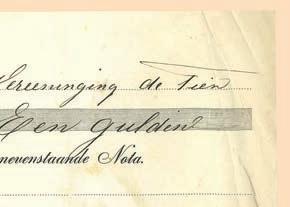 Vereeninging de Tien
Een gulden
nevenstaande Nota.